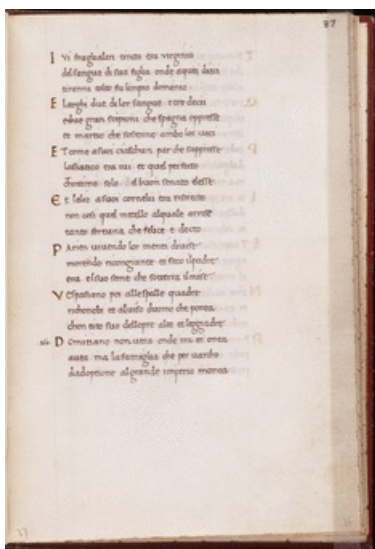 87
IVi fraglaltri tinto era verginio
del sangue di sua figlia onde aquei dieci
tiranni tolto fu lempio dominio
E Larghi due di lor sangue e tre decii
e due gran scipioni che spagna oppresse
et martio che sostenne ambo lor veci
E Come asuoi ciaschun par che sappresse
lasiatico era ivi et quel perfecto
choptimo solo el buon senato elesse
Et lelio asuoi cornelii era ristrecto
non cosi quel metello alquale arrise
tanto fortuna che felice e decto
PArien vivendo lor menti divise
morendo ricongiunte et seco ilpadre
era elsuo seme che sotterra ilmise
VEspasiano poi allespalle quadre
richonobi et alviso duomo che ponza
chon tito suo dellopre alte et leggiadre
DOmitiano non vera onde ira et onta
avea ma lafamiglia che per varcho
dadoptione algrande imperio monta